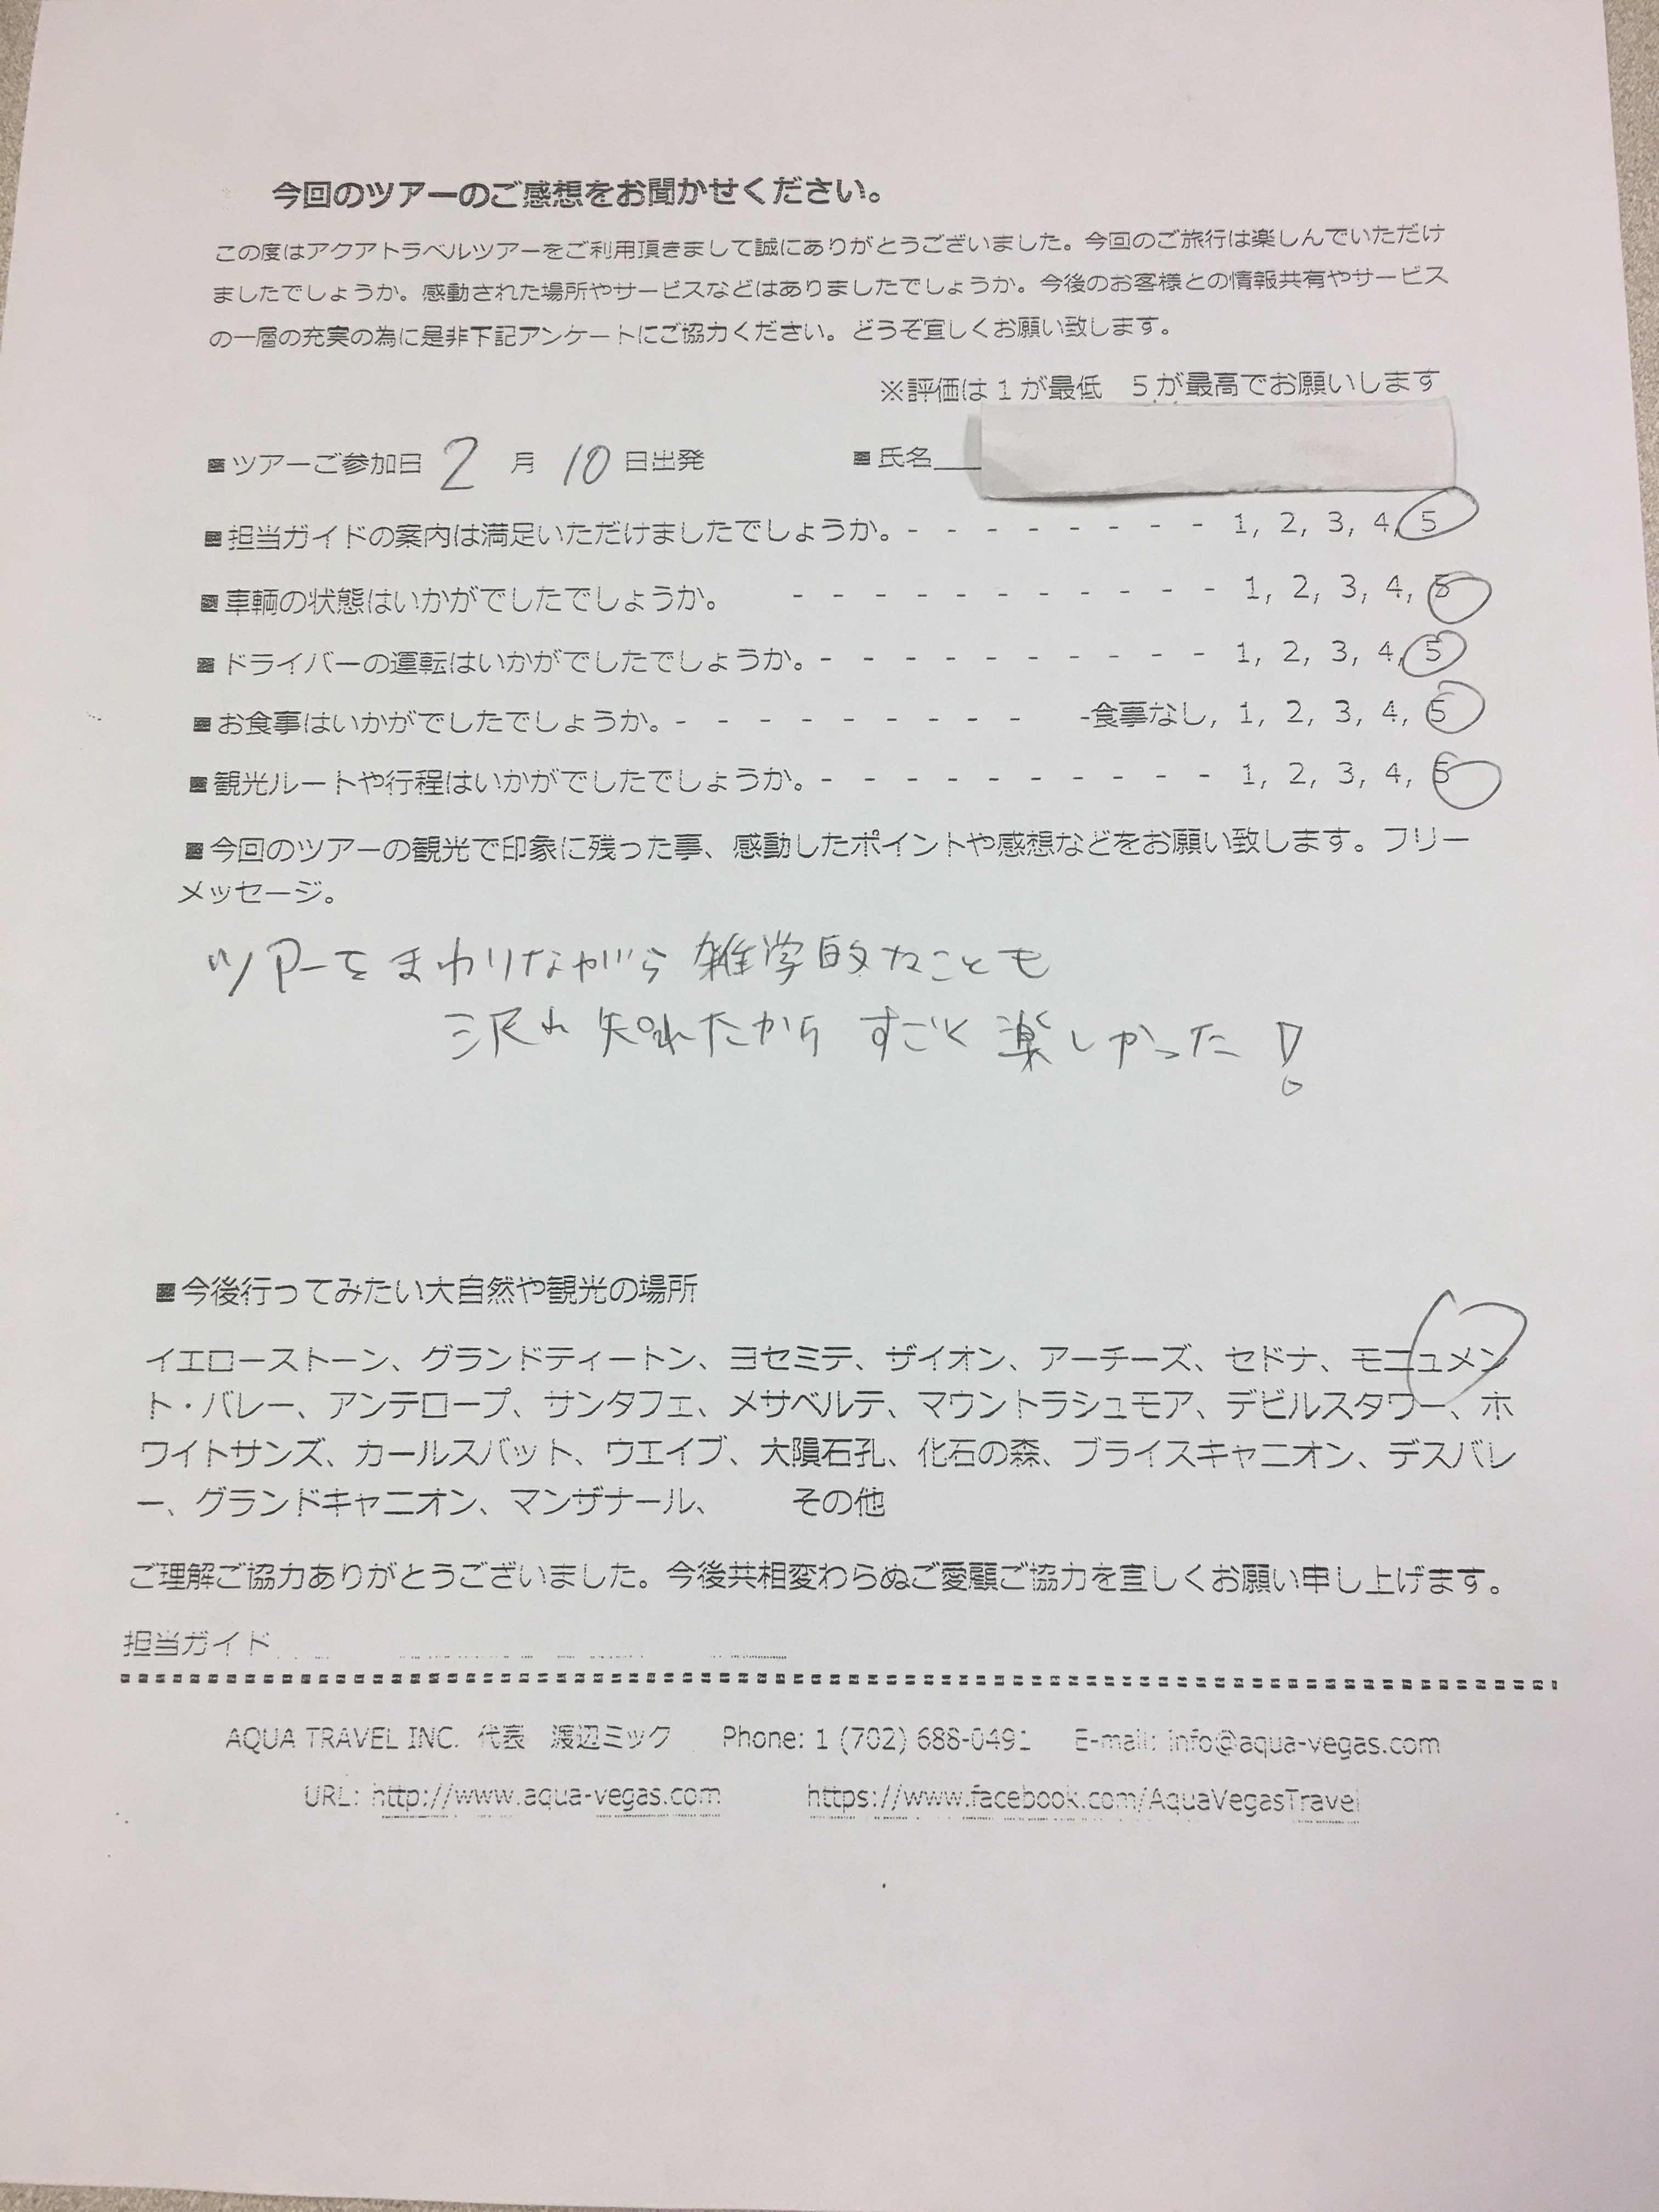 今回のツアーのご感想をお聞かせください。
この度はアクアトラベルツアーをご利用頂きまして誠にありがとうございました。今回のご旅行は楽しんでいただけ
ましたでしょうか。感動された場所やサービスなどはありましたでしょうか。今後のお客様との情報共有やサービス
の一層の充実の為に是非下記アンケートにご協力ください。どうぞ宜しくお願い致します。
※評価は1が最低　5が最高でお願いします
■ツアーご参加日 2 月 10 日出発　■氏名
■担当ガイドの案内は満足いただけましたでしょうか。- - - - - - - - 1, 2, 3, 4, 5
■車輌の状態はいかがでしたでしょうか。　- - - - - - - - - - - 1, 2, 3, 4, 5
■ドライバーの運転はいかがでしたでしょうか。- - - - - - - - - - 1, 2, 3, 4, 5
■お食事はいかがでしたでしょうか。- - - - - - - - -　-食事なし, 1, 2, 3, 4, 5
■観光ルートや行程はいかがでしたでしょうか。- - - - - - - - - - 1, 2, 3, 4, 5
■今回のツアーの観光で印象に残った事、感動したポイントや感想などをお願い致します。フリー
メッセージ。
ツアーをまわりながら雑学的なことも
沢山 知れたから すごく楽しかった!
■今後行ってみたい大自然や観光の場所
イエローストーン、グランドティートン、ヨセミテ、ザイオン、アーチーズ、セドナ、モニュメン
ト・バレー、アンテロープ、サンタフェ、メサベルテ、マウントラシュモア、デビルスタワー、ホ
ワイトサンズ、カールスバット、ウエイブ、大隕石孔、化石の森、ブライスキャニオン、デスバレ
ー、グランドキャニオン、マンザナール、　　その他
ご理解ご協力ありがとうございました。今後共相変わらぬご愛顧ご協力を宜しくお願い申し上げます。
担当ガイド
AQUA TRAVEL INC. 代表　渡辺ミック　Phone: 1 (702) 688-0491　E-mail: info@aqua-vegas.com
URL: http://www.aqua-vegas.com　https://www.facebook.com/AquaVegasTravel